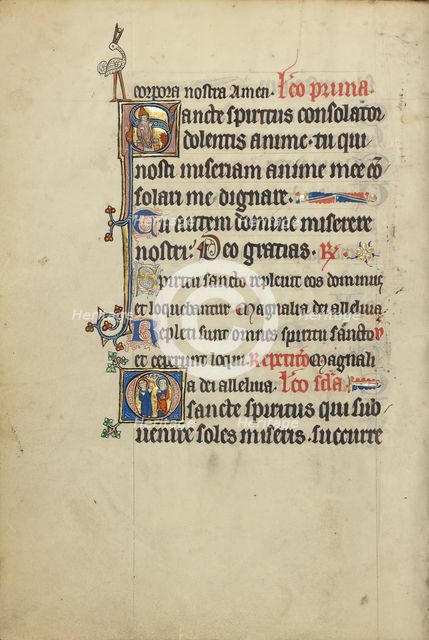 corpora nostra Amen. Lc̄o prima.
Sancte spiritus consolator
dolentis anime. tu qui
nosti miseriam anime mee cō
solari me dignare.
Tu autem domine miserere
nostri. Deo gratias. R̄
Spiritu sancto repleuit eos dominus
et loquebantur Magnalia dei alleluia
Repleti sunt omnes spiritu sancto V
et ceperunt loqui. Repeticio Magnali
a dei alleluia. Lc̄o scd̄a.
O sancte spiritus qui sub
uenire soles miseris. succurre
Heritage
Heritage
Heritage
Heritage